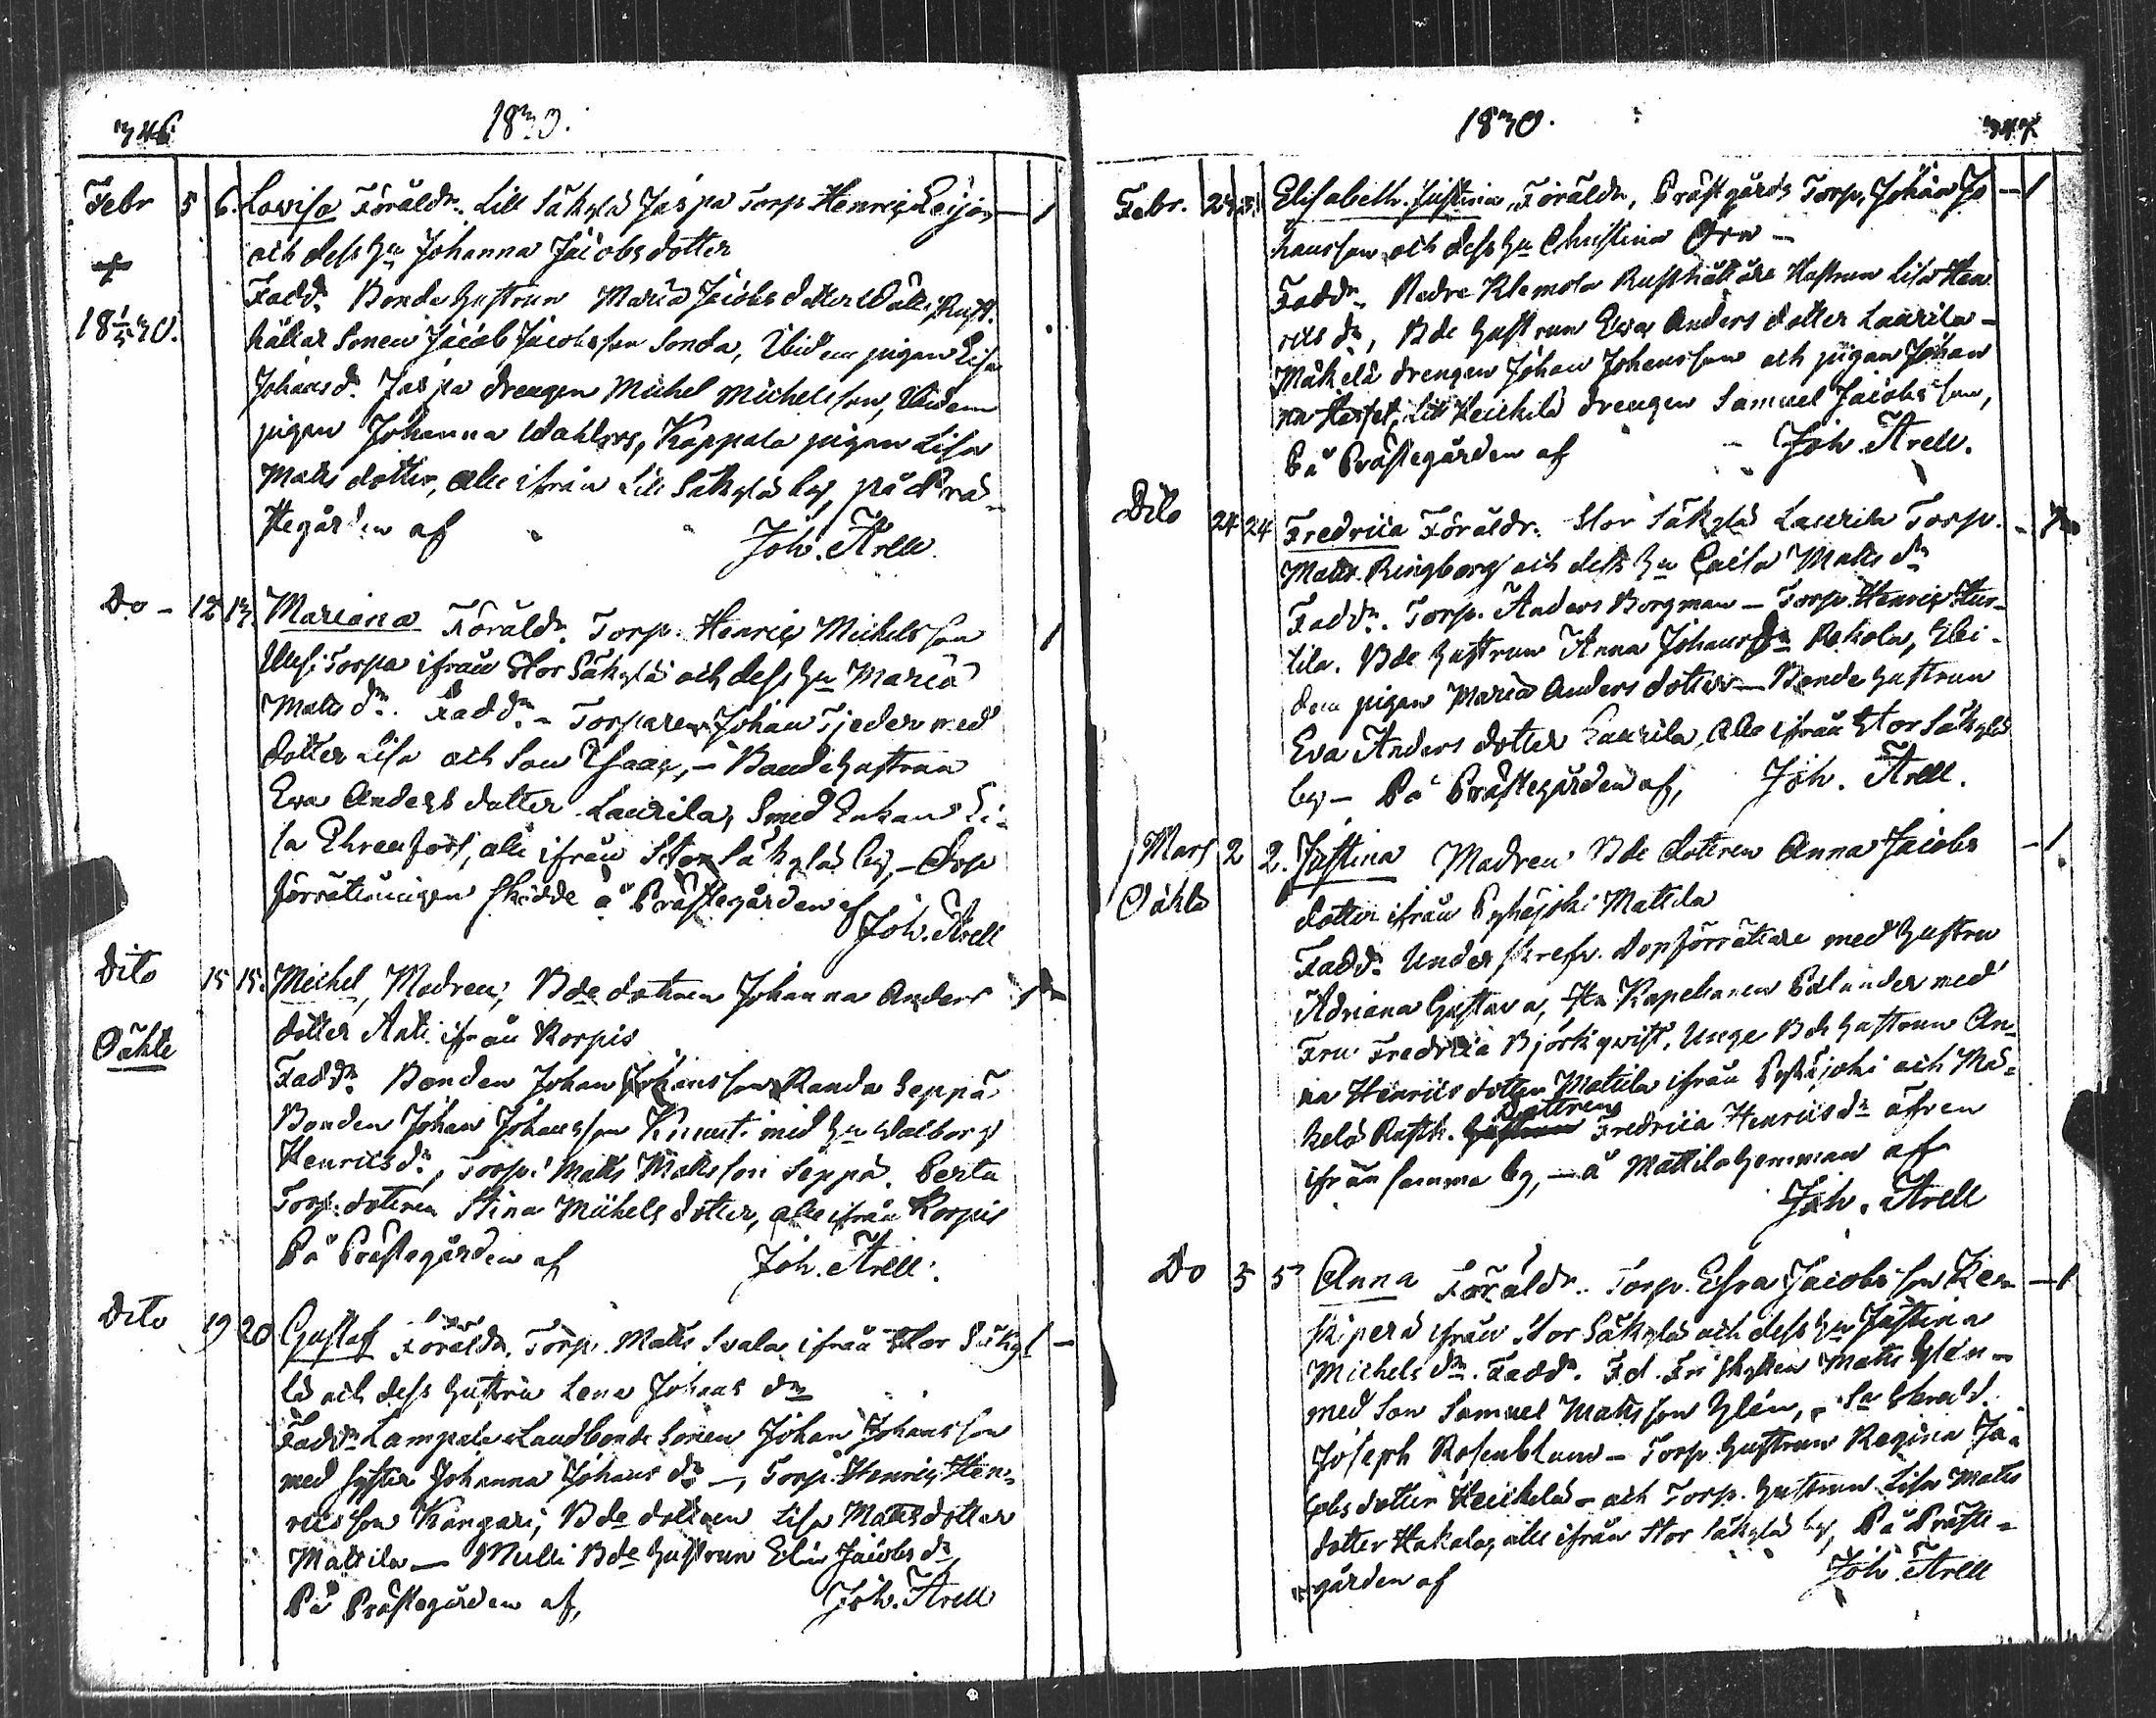 346
1830.
Febr 5 6. Lovisa Föräldr. Lill Säkylä Jaspa Torp. Henric Leijon — 1
och dess Hu Johanna Jacobsdotter
†
Fadd. Bonde Hustrun Maria Jacobsdotter Rust-
18 1/5 30.
hållar Sonen Jacob Jacobsson Sonda, Ibidem pigan Lisa
Johansd. Jaspa drengen Michel Michelsson, Ibidem
pigan Johanna Wahlroos, Kappala pigan Lisa
Matts dotter, alle ifrån Lill Säkylä by, på Prä-
stegården af Joh. Arell
Do - 12 13. Mariana Föräldr. Torp. Henric Michelsson 1
Uusi Torpa ifrån Stor Säkylä och dess Hu Maria
Matts dr. Faddr. - Torparen Johan Tjeder med
dotter Lisa och Son Isaac, - Bonde Hustrun
Eva Anders dotter Laurila, Smed Enkan Li-
sa Ehrenfors, alle ifrån Stor Säkylä by, - Dop
förrättningen skedde å Prästegården af
Joh. Arell
Dito 15 15. Michel, Modren, Bde dottren Johanna Anders 1
dotter Anti ifrån Korpis
Oäkta
Faddr. Bonden Johan Johansson Randa Seppä
Bonden Johan Johansson Knuuti med Hu Walborg
Henricsdr, Torp. Matts Mattsson Seppä. Perta
Torp. dottren Stina Michels dotter, alle ifrån Korpis
På Prästegården af Joh. Arell.
Dito 19 20 Gustaf Föräldr. Torp. Matts Svala ifrån Stor Säky 1 -
lä och dess Hustru Lena Johans dr
Faddr Lampala Landbonde Sonen Johan Johansson
med syster Johanna Johans dr —, Torp. Henric Hen-
ricsson Kangari, Bde dottren Lisa Mattsdotter
Mattila — Mulli Bde Hustrun Elin Jacobs dr
På Prästegården af, Joh. Arell
1830.
347
Febr. Elisabeth Justina, Föräldr, Prästgårds Torp. Johan Jo — 1
hansson och dess Hu Christina Orn —
Faddr. Nedre Klemola Rusthållare Hustrun Lisa Hen
rics dr, Bde Hustrun Eva Anders dotter Laurila -
Mäkelä drengen Johan Johansson och pigan Johan
na Lill Heickilä drengen Samuel Jacobsson,
På Prästegården af Joh. Arell.
Dito 24 24 Fredrica Föräldr. Stor Säkylä Laurila Torp.
Matts Ringborg och dess Hu Caisa Matts dr
Faddr. Torp. Anders Borgman — Torp. Henric Hur-
tila. Bde Hustrun Anna Johans dr Rekola, Ibi-
dem pigan Maria Anders dotter — Bonde Hustrun
Eva Anders dotter Laurila, Alla ifrån Stor Säkylä
by — På Prästegården af, Joh. Arell.
Mars 2 2. Justina Modren Bde dottren Anna Jacobs — 1
Oäkta
dotter ifrån Pyhäjoki Mattila
Faddr. Underskrefn. dopförrättare med Hustru
Adriana Gustava, Hr Kapellanen Palander med
Fru Fredrica Björkqvist, Unge Bde Hustrun An-
na Henrics dotter Mattila ifrån Pyhäjoki och Mä-
kelä Rusth. dottren Fredrica Henricsdr äfven
ifrån samma by, — å Mattila Hemman af
Joh. Arell
Do 5 5 Anna Föräldr. Torp. Esra Jacobsson Kem — 1
piperä ifrån Stor Säkylä och dess Hu Justina
Michels dr. Faddr. Fd. Friskytten Matts Glén —
med Son Samuel Mattsson Glén, -
Joseph Rosenblum — Torp. Hustrun Regina Ja-
cobs dotter Heickelä — och Torp. Hustrun Lisa Matts
dotter Hakala, alle ifrån Stor Säkylä by, På Präste-
gården af Joh. Arell